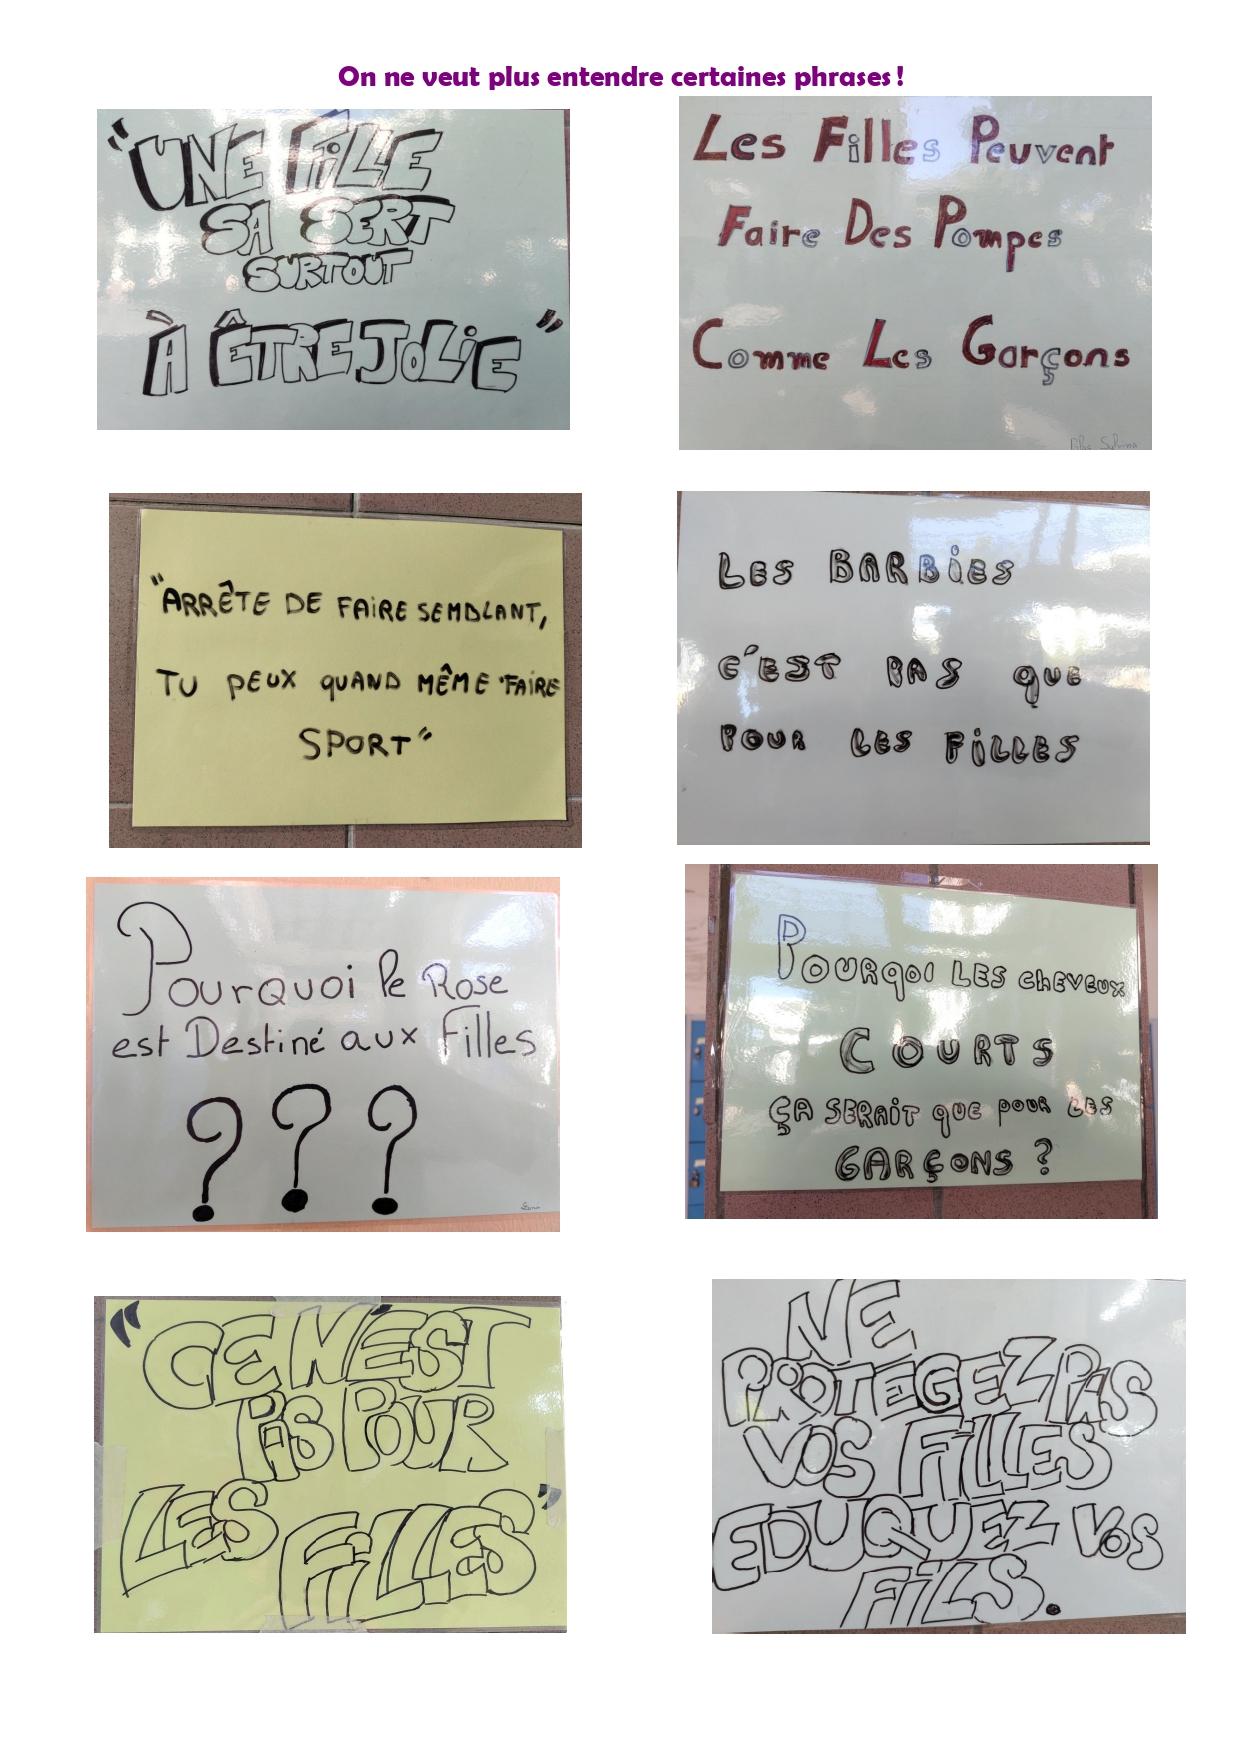 On ne veut plus entendre certaines phrases !
"UNE FiLLE
SA SERT
SURTOUT
À ÊTRE JOLiE"
Les Filles Peuvent
Faire Des Pompes
Comme Les Garçons
"ARRÊTE DE FAIRE SEMBLANT,
TU PEUX QUAND MÊME FAIRE
SPORT"
LES BARBiES
C'EST PAS QUE
POUR LES FiLLES
Pourquoi le Rose
est Destiné aux Filles
???
POURQUOI LES CHEVEUX
COURTS
ÇA SERAiT QUE POUR LES
GARÇONS ?
"CE N'EST
PAS POUR
LES
FiLLES"
NE
PROTEGEZ PAS
VOS FiLLES
EDUQUEZ VOS
FiLS.